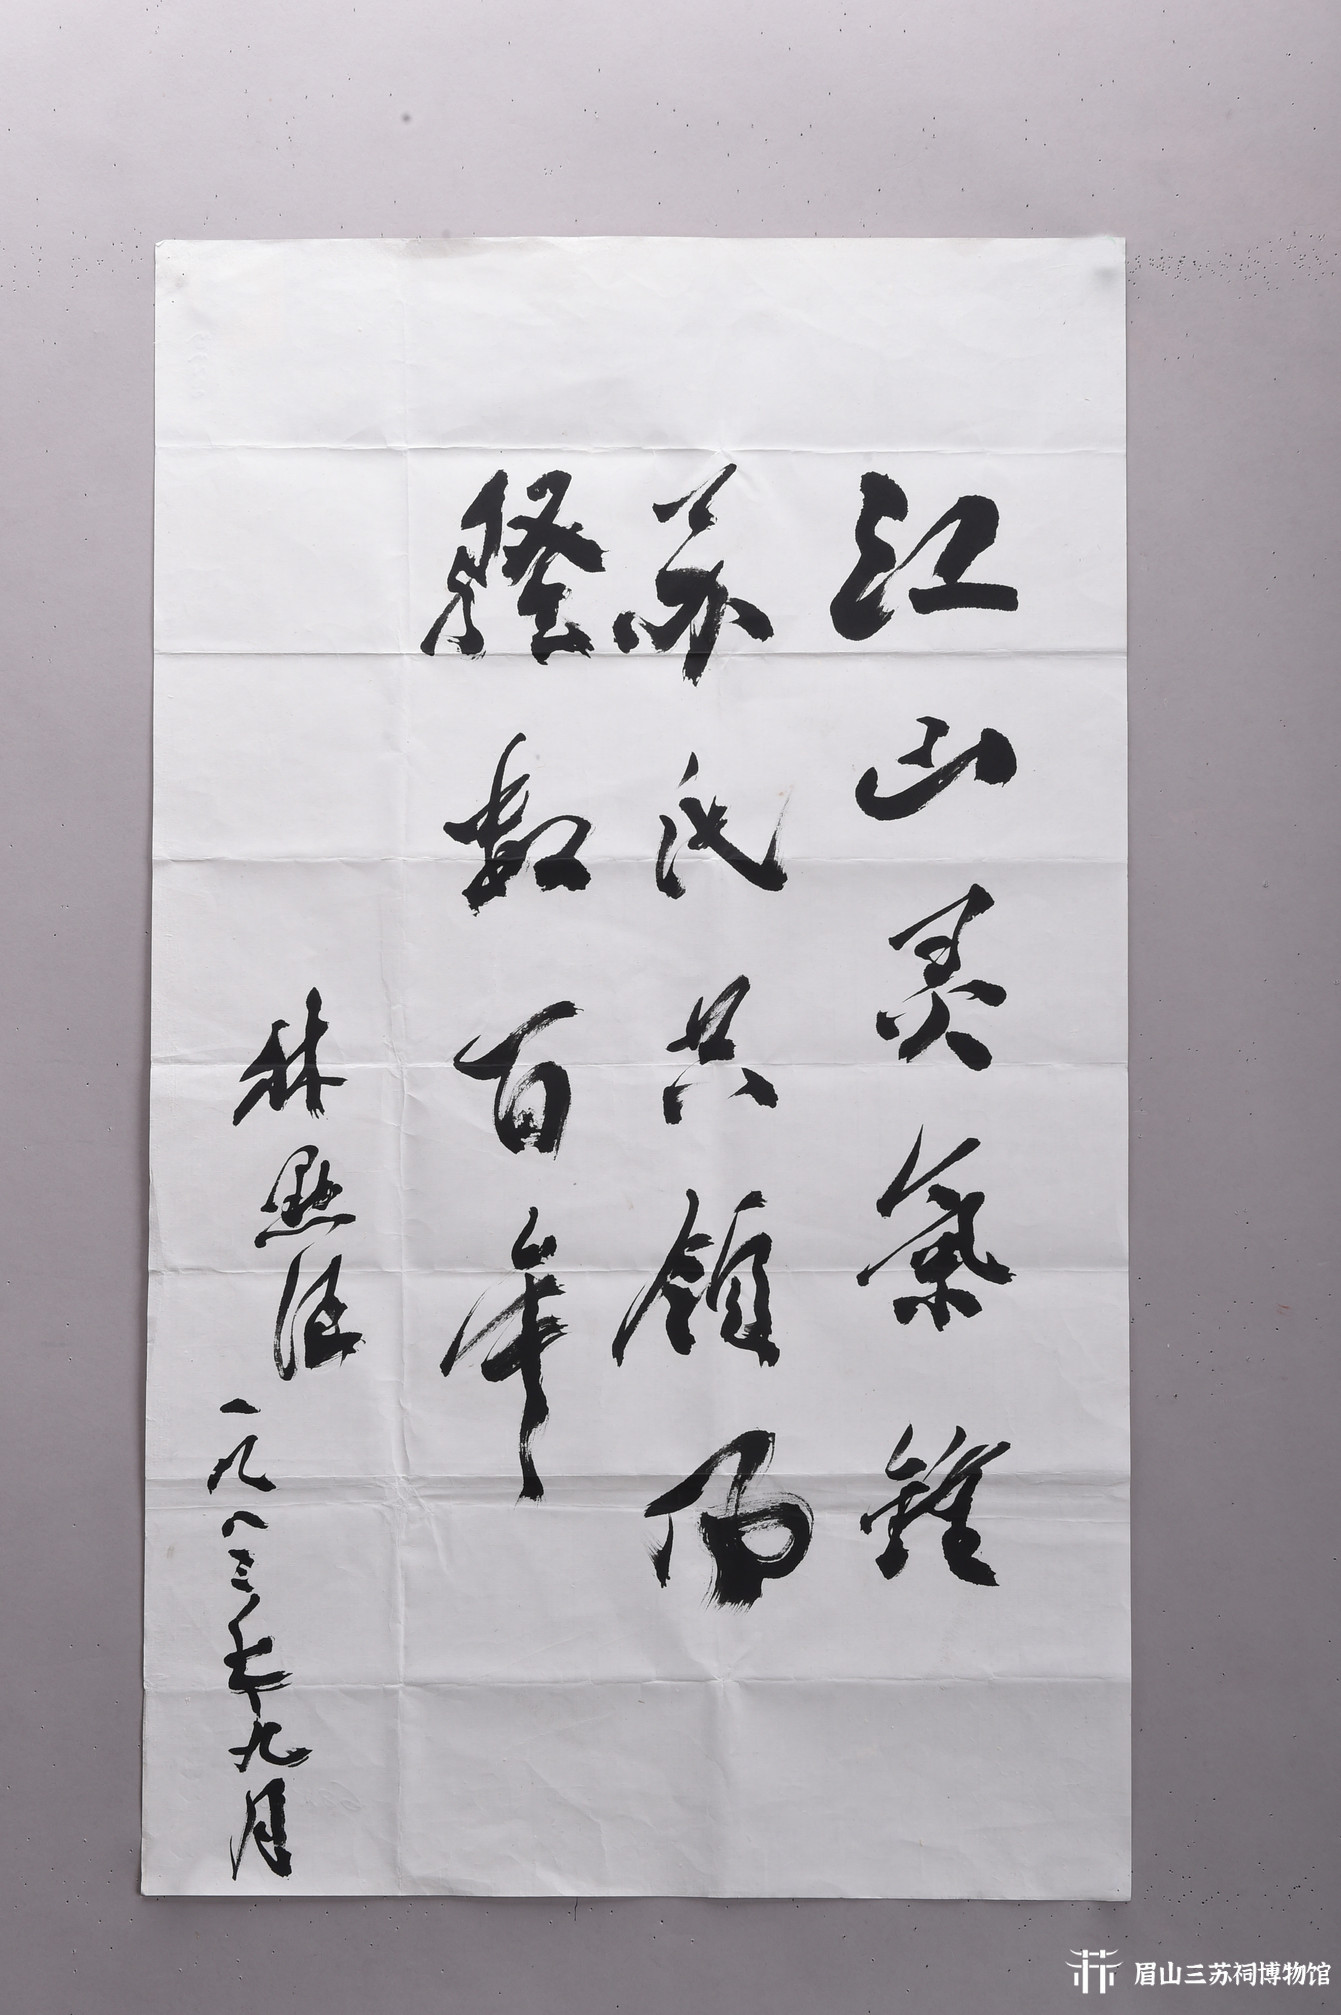 江山灵氣鍾
苏氏共領风
骚数百年
林默涵
一九八三年九月
眉山三苏祠博物馆